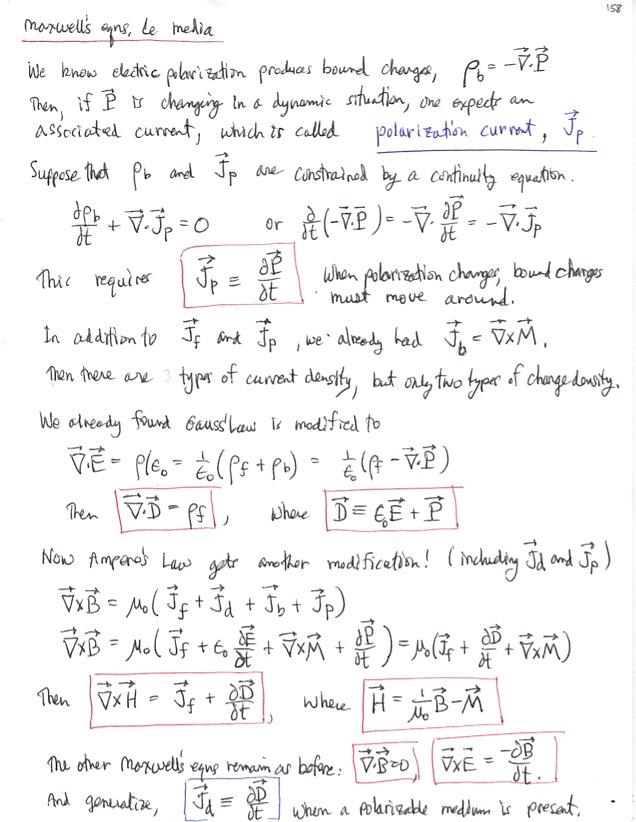 158
Maxwell's eqns, de media
We know electric polarization produces bound charges, ρ_b = -∇⃗·P⃗
Then, if P⃗ is changing in a dynamic situation, one expects an
associated current, which is called polarization current, J⃗_p.
Suppose that ρ_b and J⃗_p are constrained by a continuity equation.
∂ρ_b/∂t + ∇⃗·J⃗_p = 0 or ∂/∂t(-∇⃗·P⃗) = -∇⃗·∂P⃗/∂t = -∇⃗·J⃗_p
This requires J⃗_p ≡ ∂P⃗/∂t When polarization changes, bound charges
must move around.
In addition to J⃗_f and J⃗_p, we already had J⃗_b = ∇⃗×M⃗.
Then there are 3 types of current density, but only two types of charge density.
We already found Gauss' Law is modified to
∇⃗·E⃗ = ρ/ε₀ = 1/ε₀(ρ_f + ρ_b) = 1/ε₀(ρ_f - ∇⃗·P⃗)
Then ∇⃗·D⃗ = ρ_f, where D⃗ ≡ ε₀E⃗ + P⃗
Now Ampere's Law gets another modification! (including J⃗_d and J⃗_p)
∇⃗×B⃗ = μ₀(J⃗_f + J⃗_d + J⃗_b + J⃗_p)
∇⃗×B⃗ = μ₀(J⃗_f + ε₀ ∂E⃗/∂t + ∇⃗×M⃗ + ∂P⃗/∂t) = μ₀(J⃗_f + ∂D⃗/∂t + ∇⃗×M⃗)
Then ∇⃗×H⃗ = J⃗_f + ∂D⃗/∂t, where H⃗ = 1/μ₀ B⃗ - M⃗
The other Maxwell's eqns remain as before: ∇⃗·B⃗=0, ∇⃗×E⃗ = -∂B⃗/∂t.
And generalize, J⃗_d ≡ ∂D⃗/∂t when a polarizable medium is present.